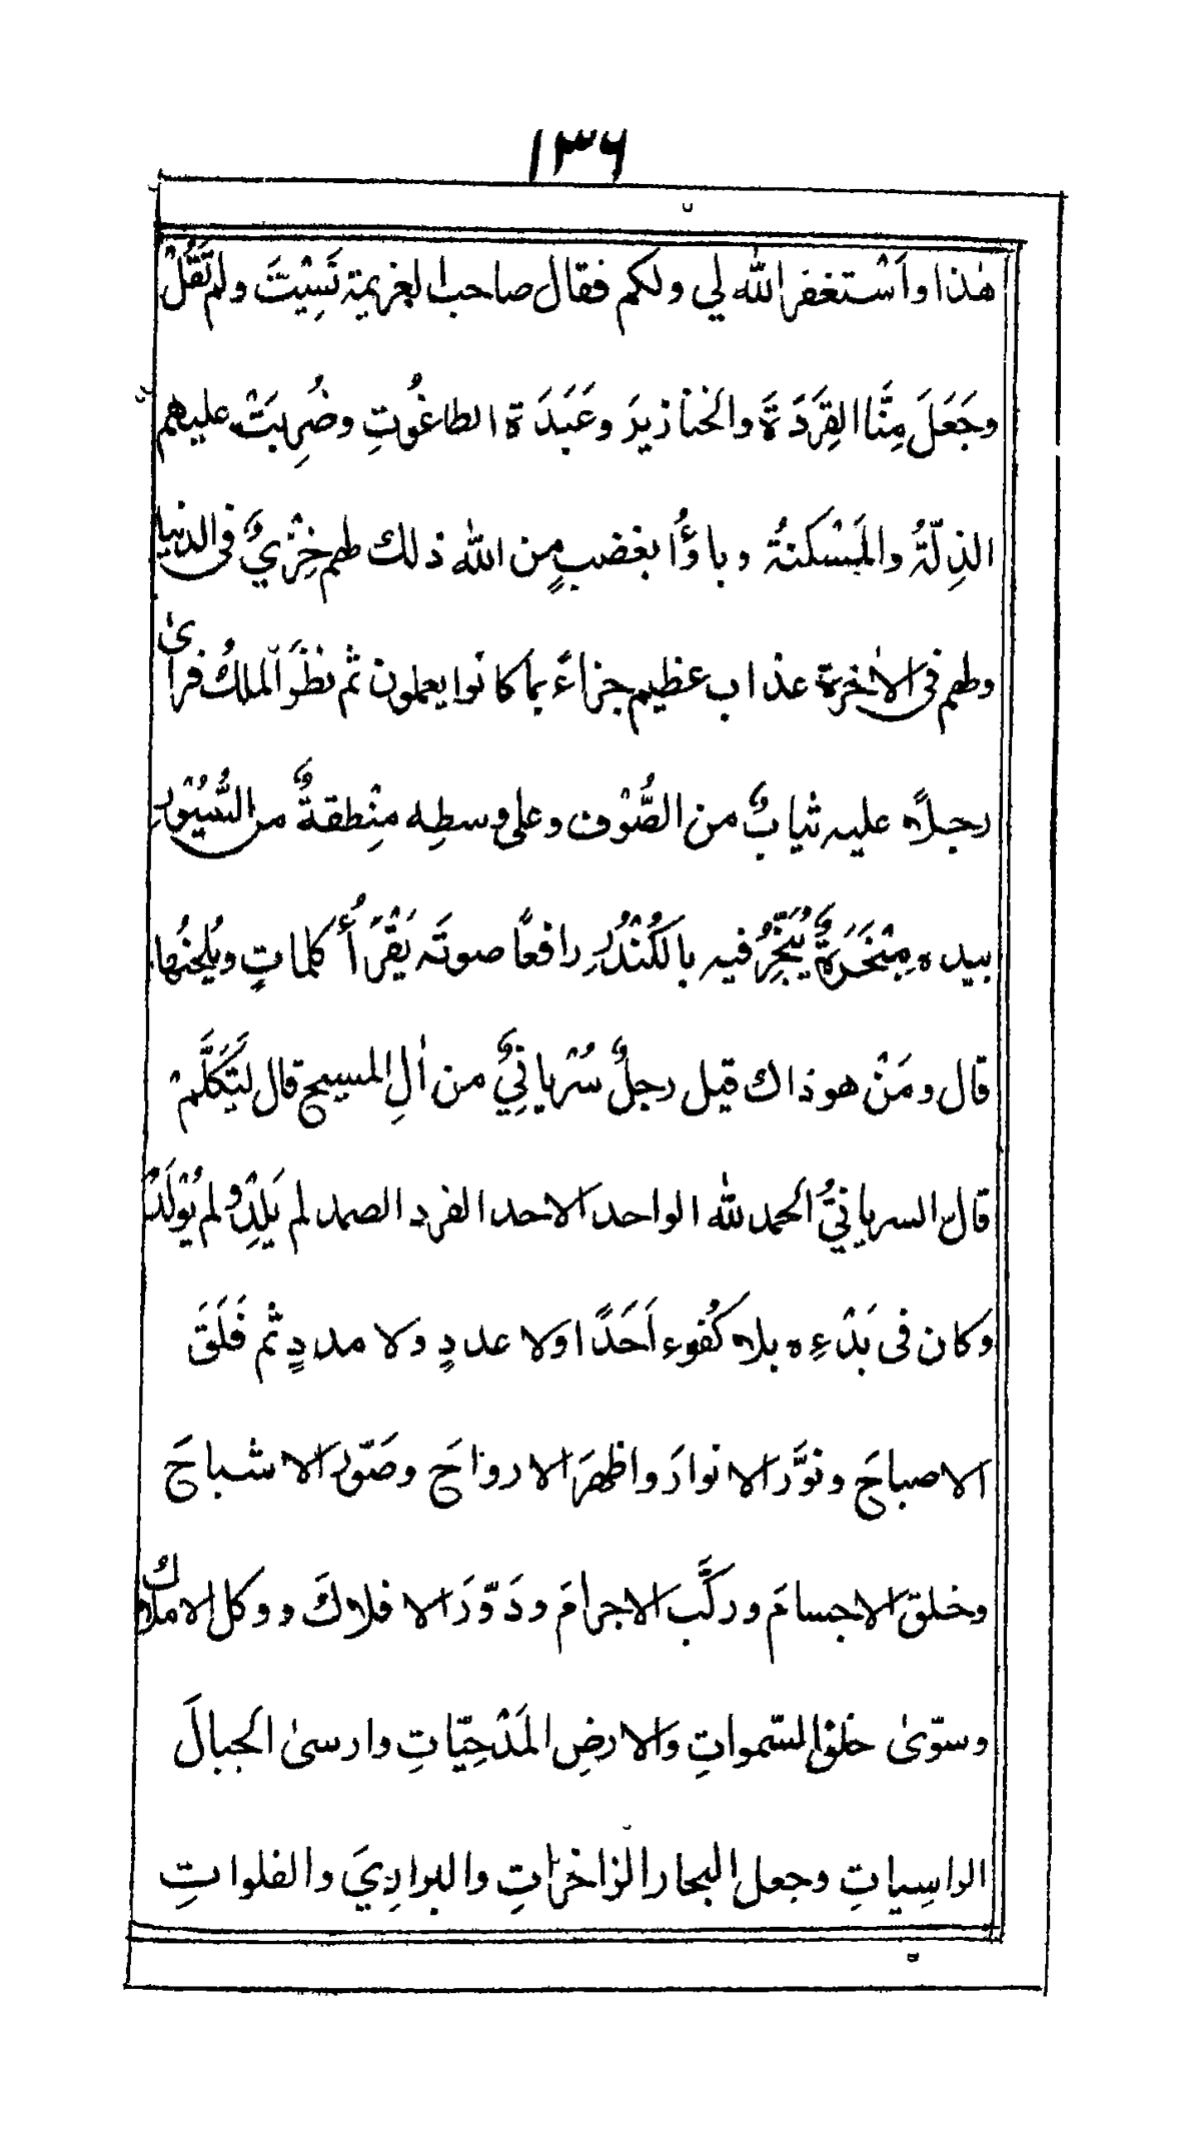 ١٣٦
هٰذا واَسْتغفر اللّٰه لي ولكم فقال صاحب العزيمة نَسِيْتَ ولم تَقُلْ
وجَعَلَ مِنَّا القِرَدَةَ والخنازيرَ وعَبَدَة الطاغُوتِ وضُرِبَتْ عليهم
الذِلّةُ والمَسْكنةُ وباؤُا بغضبٍ من اللّٰه ذلك لهم خِزْيٌ في الدنيا
ولهم في الاٰخرة عذاب عظيم جزاءً بما كانوا يعملون ثم نظَرَ الملكُ فرأىٰ
رجلاً عليه ثيابٌ من الصُّوْف وعلى وسطِه مِنْطقةٌ من السُّيُوْرِ
بيده مِبْخَرَةٌ يُبَخِّرُ فيه بالكُنْدُرِ رافعًا صوتَه يَقْرَأُ كلماتٍ ويُلحِنُها
قال ومَنْ هو ذاك قيل رجلٌ سُرْيانِيٌ من اٰلِ المسيح قال ليَتَكَلَّمْ
قال السريانِيُّ الحمد للّٰه الواحد الاحد الفرد الصمد لم يَلِدْ ولم يُوْلَدْ
وكان فى بَدْءِه بلا كُفوء اَحَدًا ولا عددٍ ولا مددٍ ثم فَلَقَ
الاصباحَ ونوَّر الانوارَ واظهرَ الارواحَ وصَوّر الاشباحَ
وخلق الاجسامَ وركَّب الاجرامَ ودَوّرَ الافلاكَ ووكل الاملاك
وسوّىٰ خلق السّمواتِ والارضِ المَدْحِيّاتِ وارسىٰ الجبالَ
الراسِياتِ وجعل البحار الزاخراتِ والبرارِيَ والفلواتِ